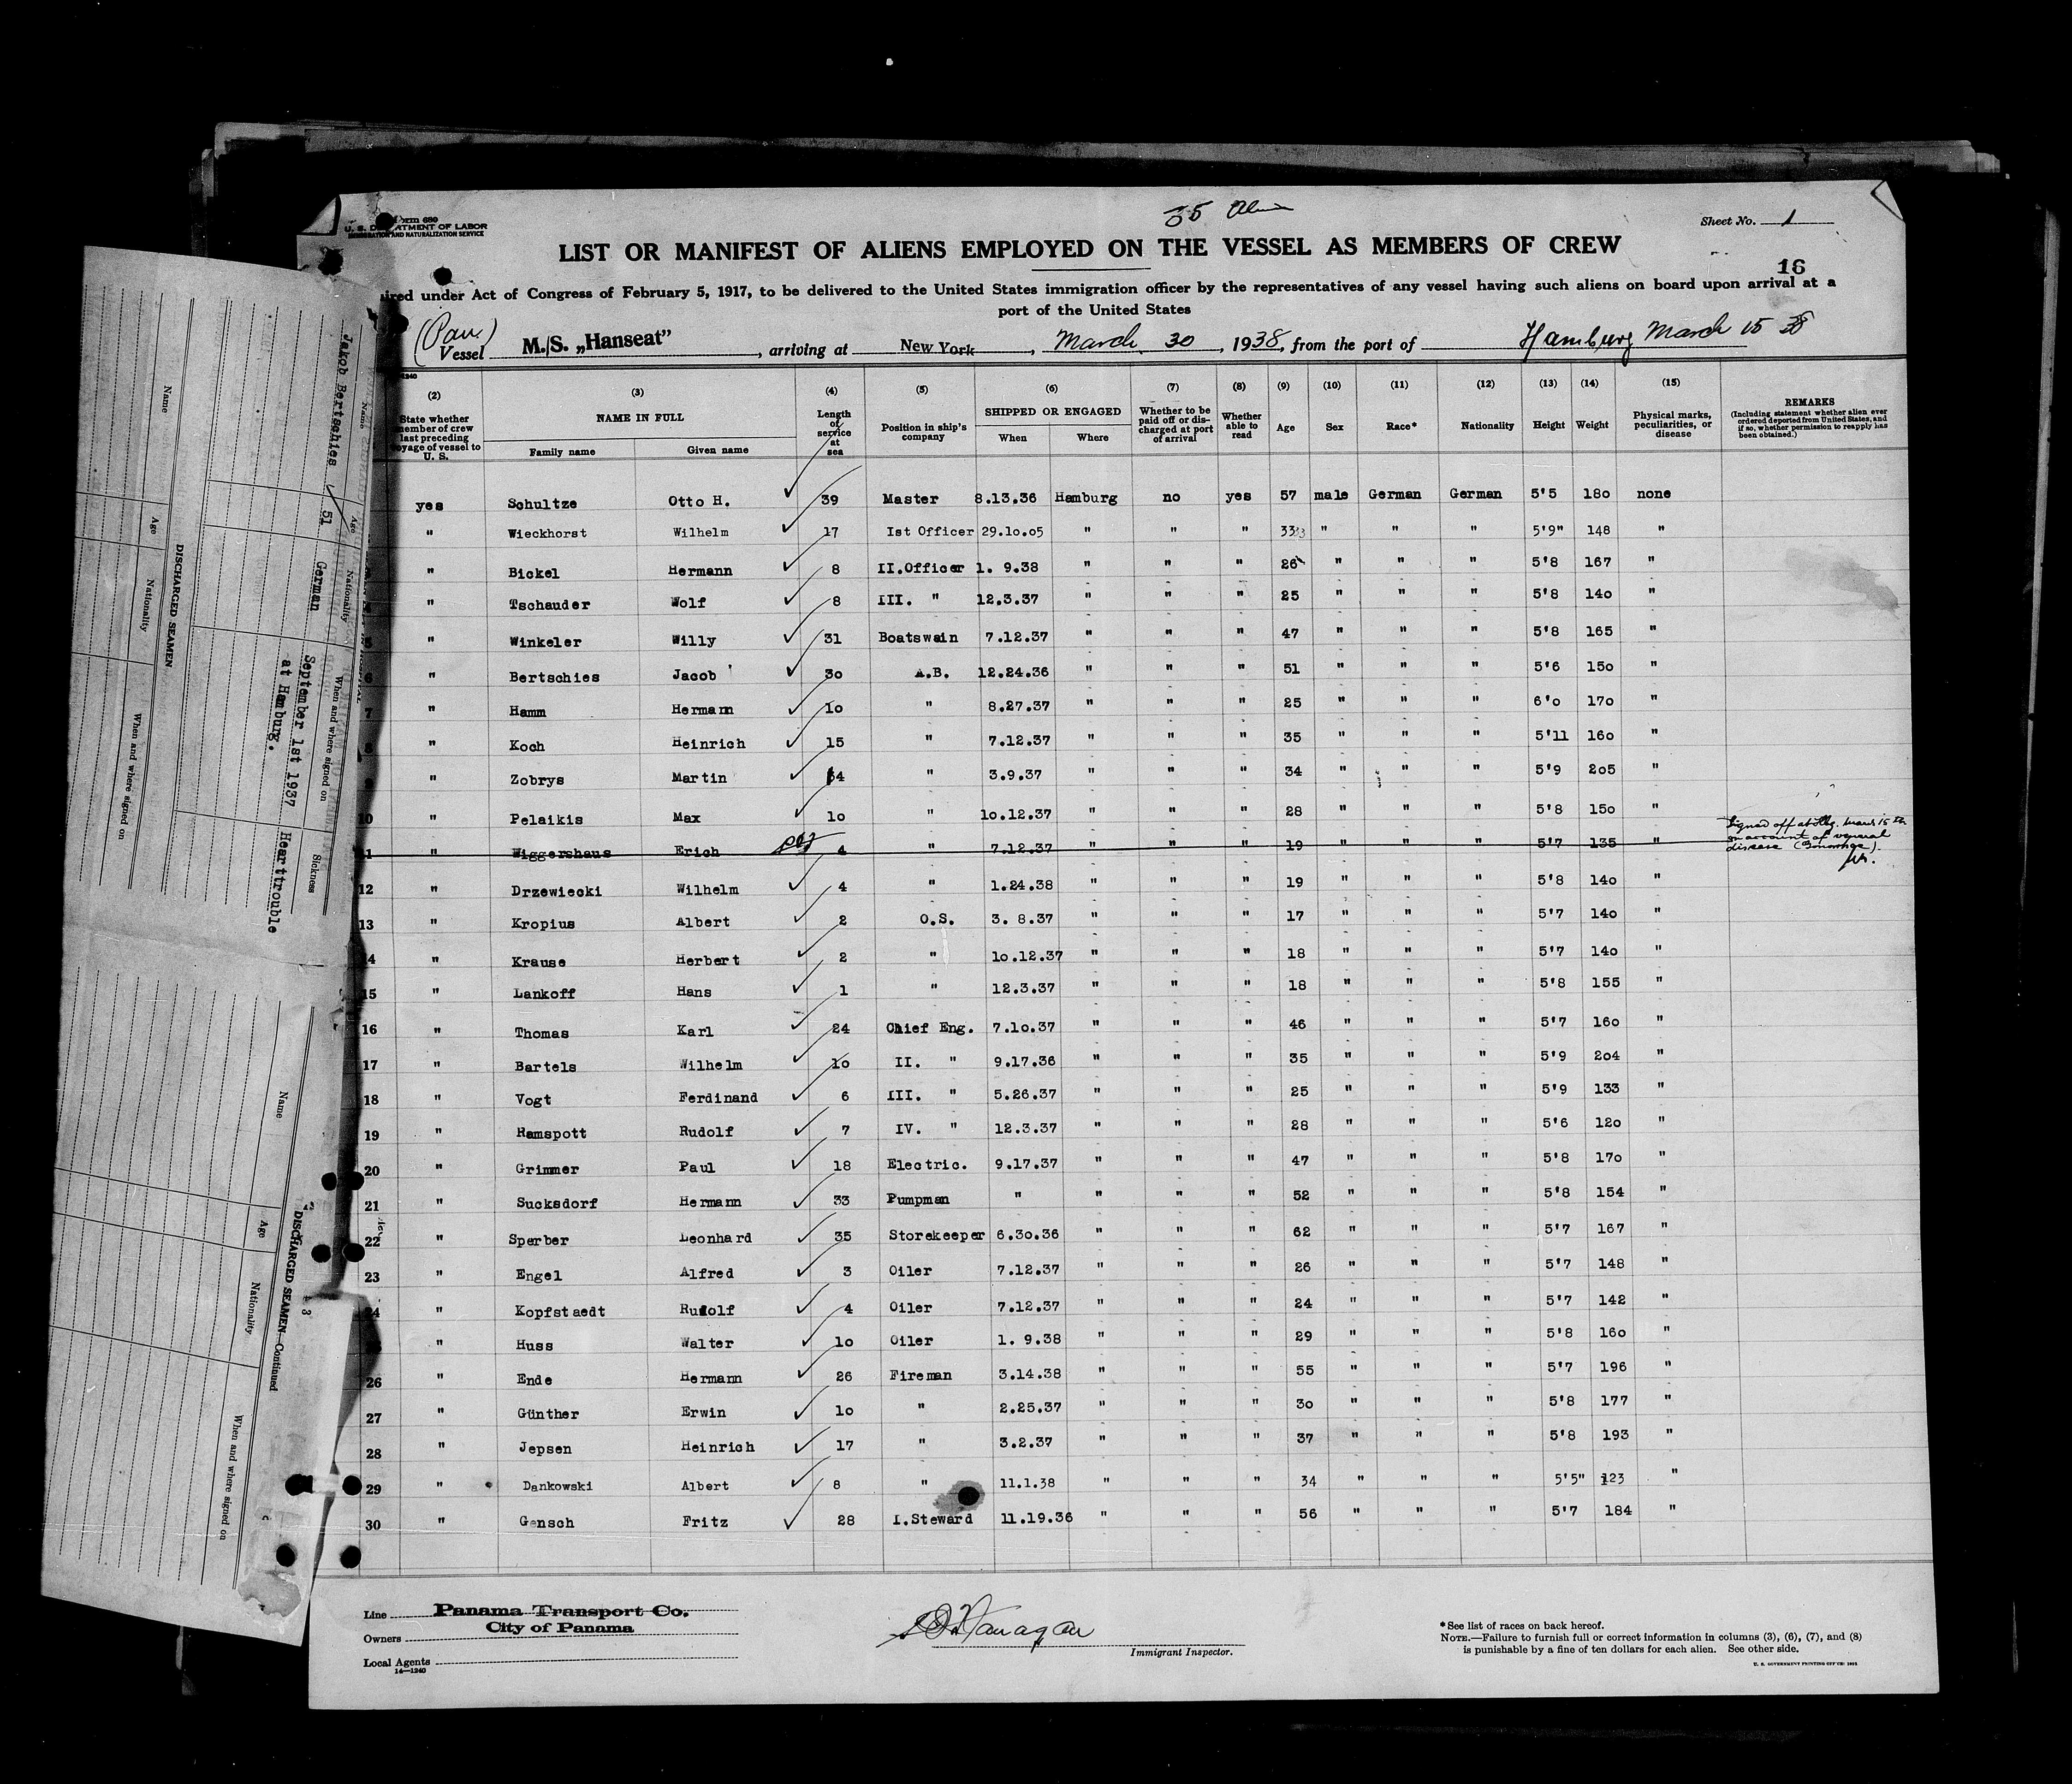 Form 689
U. S. DEPARTMENT OF LABOR
IMMIGRATION AND NATURALIZATION SERVICE
35
Sheet No. 1
LIST OR MANIFEST OF ALIENS EMPLOYED ON THE VESSEL AS MEMBERS OF CREW
16
ired under Act of Congress of February 5, 1917, to be delivered to the United States immigration officer by the representatives of any vessel having such aliens on board upon arrival at a
port of the United States
(Pan)
Vessel M./S. „Hanseat”, arriving at New York, March 30, 1938, from the port of Hamburg March 15 38
(2) State whether member of crew last preceding voyage of vessel to U. S.
(3) NAME IN FULL Family name Given name
(4) Length of service at sea
(5) Position in ship's company
(6) SHIPPED OR ENGAGED When Where
(7) Whether to be paid off or discharged at port of arrival
(8) Whether able to read
(9) Age
(10) Sex
(11) Race*
(12) Nationality
(13) Height
(14) Weight
(15) Physical marks, peculiarities, or disease
REMARKS (Including statement whether alien ever ordered deported from United States, and if so, whether permission to reapply has been obtained.)
yes Schultze Otto H. 39 Master 8.13.36 Hamburg no yes 57 male German German 5'5 180 none
" Wieckhorst Wilhelm 17 Ist Officer 29.10.05 " " " 33 " " " 5'9" 148 "
" Bickel Hermann 8 II.Officer 1. 9.38 " " " 26 " " " 5'8 167 "
4 " Tschauder Wolf 8 III. " 12.3.37 " " " 25 " " " 5'8 140 "
5 " Winkeler Willy 31 Boatswain 7.12.37 " " " 47 " " " 5'8 165 "
6 " Bertschies Jacob 30 A.B. 12.24.36 " " " 51 " " " 5'6 150 "
7 " Hamm Hermann 10 " 8.27.37 " " " 25 " " " 6'0 170 "
8 " Koch Heinrich 15 " 7.12.37 " " " 35 " " " 5'11 160 "
9 " Zobrys Martin 14 " 3.9.37 " " " 34 " " " 5'9 205 "
10 " Pelaikis Max 10 " 10.12.37 " " " 28 " " " 5'8 150 "
11 " Wiggershaus Erich 4 " 7.12.37 " " " 19 " " " 5'7 135 " Signed off at Hbg. March 15th on account of veneral disease (Gonorrhoe).
12 " Drzewiecki Wilhelm 4 " 1.24.38 " " " 19 " " " 5'8 140 "
13 " Kropius Albert 2 O.S. 3. 8.37 " " " 17 " " " 5'7 140 "
14 " Krause Herbert 2 " 10.12.37 " " " 18 " " " 5'7 140 "
15 " Lankoff Hans 1 " 12.3.37 " " " 18 " " " 5'8 155 "
16 " Thomas Karl 24 Chief Eng. 7.10.37 " " " 46 " " " 5'7 160 "
17 " Bartels Wilhelm 10 II. " 9.17.36 " " " 35 " " " 5'9 204 "
18 " Vogt Ferdinand 6 III. " 5.26.37 " " " 25 " " " 5'9 133 "
19 " Ramspott Rudolf 7 IV. " 12.3.37 " " " 28 " " " 5'6 120 "
20 " Grimmer Paul 18 Electric. 9.17.37 " " " 47 " " " 5'8 170 "
21 " Sucksdorf Hermann 33 Pumpman " " " " 52 " " " 5'8 154 "
22 " Sperber Leonhard 35 Storekeeper 6.30.36 " " " 62 " " " 5'7 167 "
23 " Engel Alfred 3 Oiler 7.12.37 " " " 26 " " " 5'7 148 "
24 " Kopfstaedt Rudolf 4 Oiler 7.12.37 " " " 24 " " " 5'7 142 "
" Huss Walter 10 Oiler 1. 9.38 " " " 29 " " " 5'8 160 "
26 " Ende Hermann 26 Fireman 3.14.38 " " " 55 " " " 5'7 196 "
27 " Günther Erwin 10 " 2.25.37 " " " 30 " " " 5'8 177 "
28 " Jepsen Heinrich 17 " 3.2.37 " " " 37 " " " 5'8 193 "
29 " Dankowski Albert 8 " 11.1.38 " " " 34 " " " 5'5" 123 "
30 " Gensch Fritz 28 I.Steward 11.19.36 " " " 56 " " " 5'7 184 "
Line Panama Transport Co.
City of Panama
Owners
Local Agents
14—1240
Immigrant Inspector.
*See list of races on back hereof.
NOTE.—Failure to furnish full or correct information in columns (3), (6), (7), and (8)
is punishable by a fine of ten dollars for each alien. See other side.
U. S. GOVERNMENT PRINTING OFFICE:
Name Age Nationality When and where signed on Sickness
Jakob Bertschies 51 German September 1st 1937 at Hamburg. Hearttrouble
DISCHARGED SEAMEN
Name Age Nationality When and where signed on
DISCHARGED SEAMEN—Continued
Name Age Nationality When and where signed on